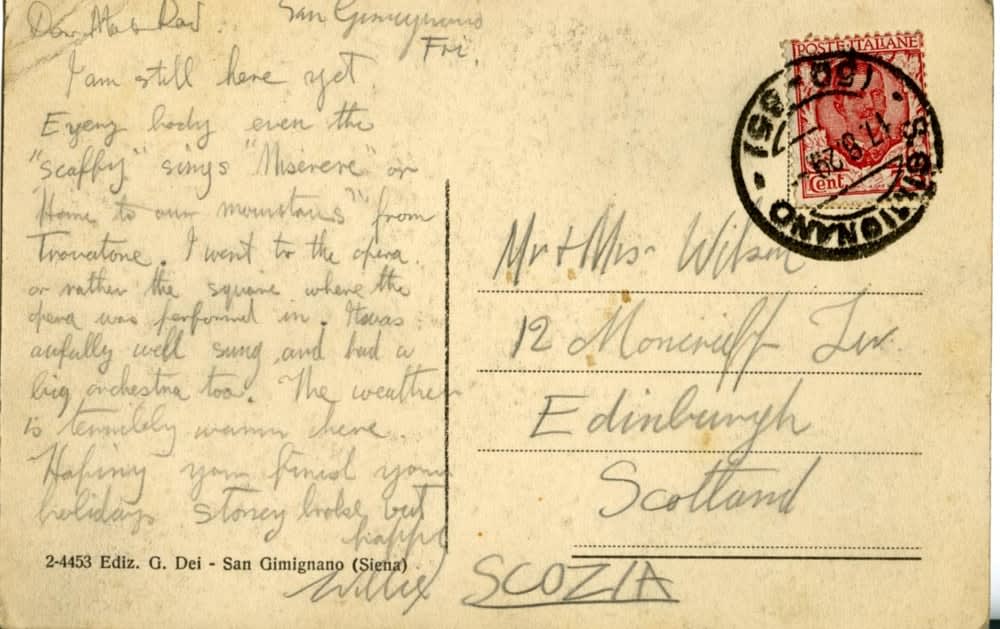 San Gimignano
Fri.
Dear Ma & Dad.
I am still here yet
Every body even the
"scaffy" sings "Miserere" or
Home to our mountains" from
Trovatore. I went to the opera.
or rather the square where the
opera was performed in. It was
awfully well sung and had a
big orchestra too. The weather
is terribly warm here.
Hoping you finish your
holidays stoney broke but
happy
Willie
2-4453 Ediz. G. Dei - San Gimignano (Siena)
POSTE ITALIANE
Cent
S. GIMIGNANO
17.8.29
Mr & Mrs. Wilson
12 Moncrieff Ter.
Edinburgh
Scotland
SCOZIA